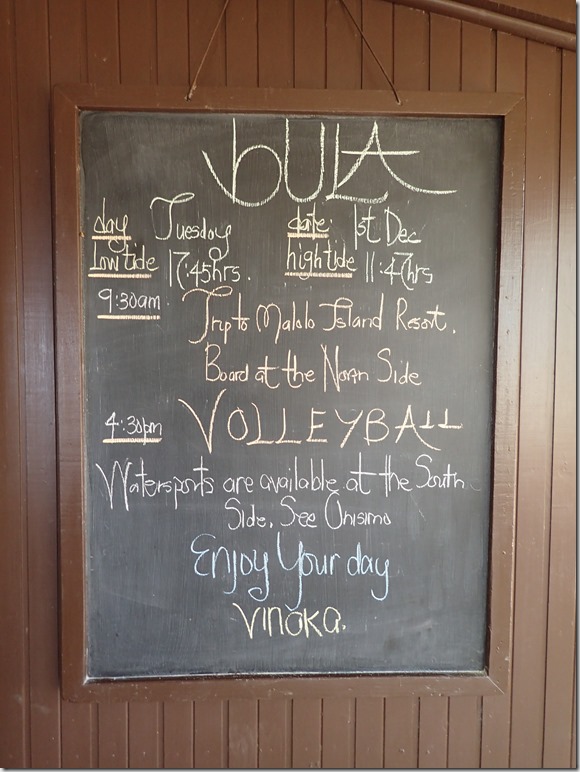 bULA
day Tuesday date 1st Dec
Low tide 17:45hrs. high tide 11:47hrs
9:30am Trip to Malolo Island Resort.
Board at the North Side
4:30pm VOLLEYBALL
Watersports are available at the South
Side. See Onisimo
Enjoy Your day
VINAKA.